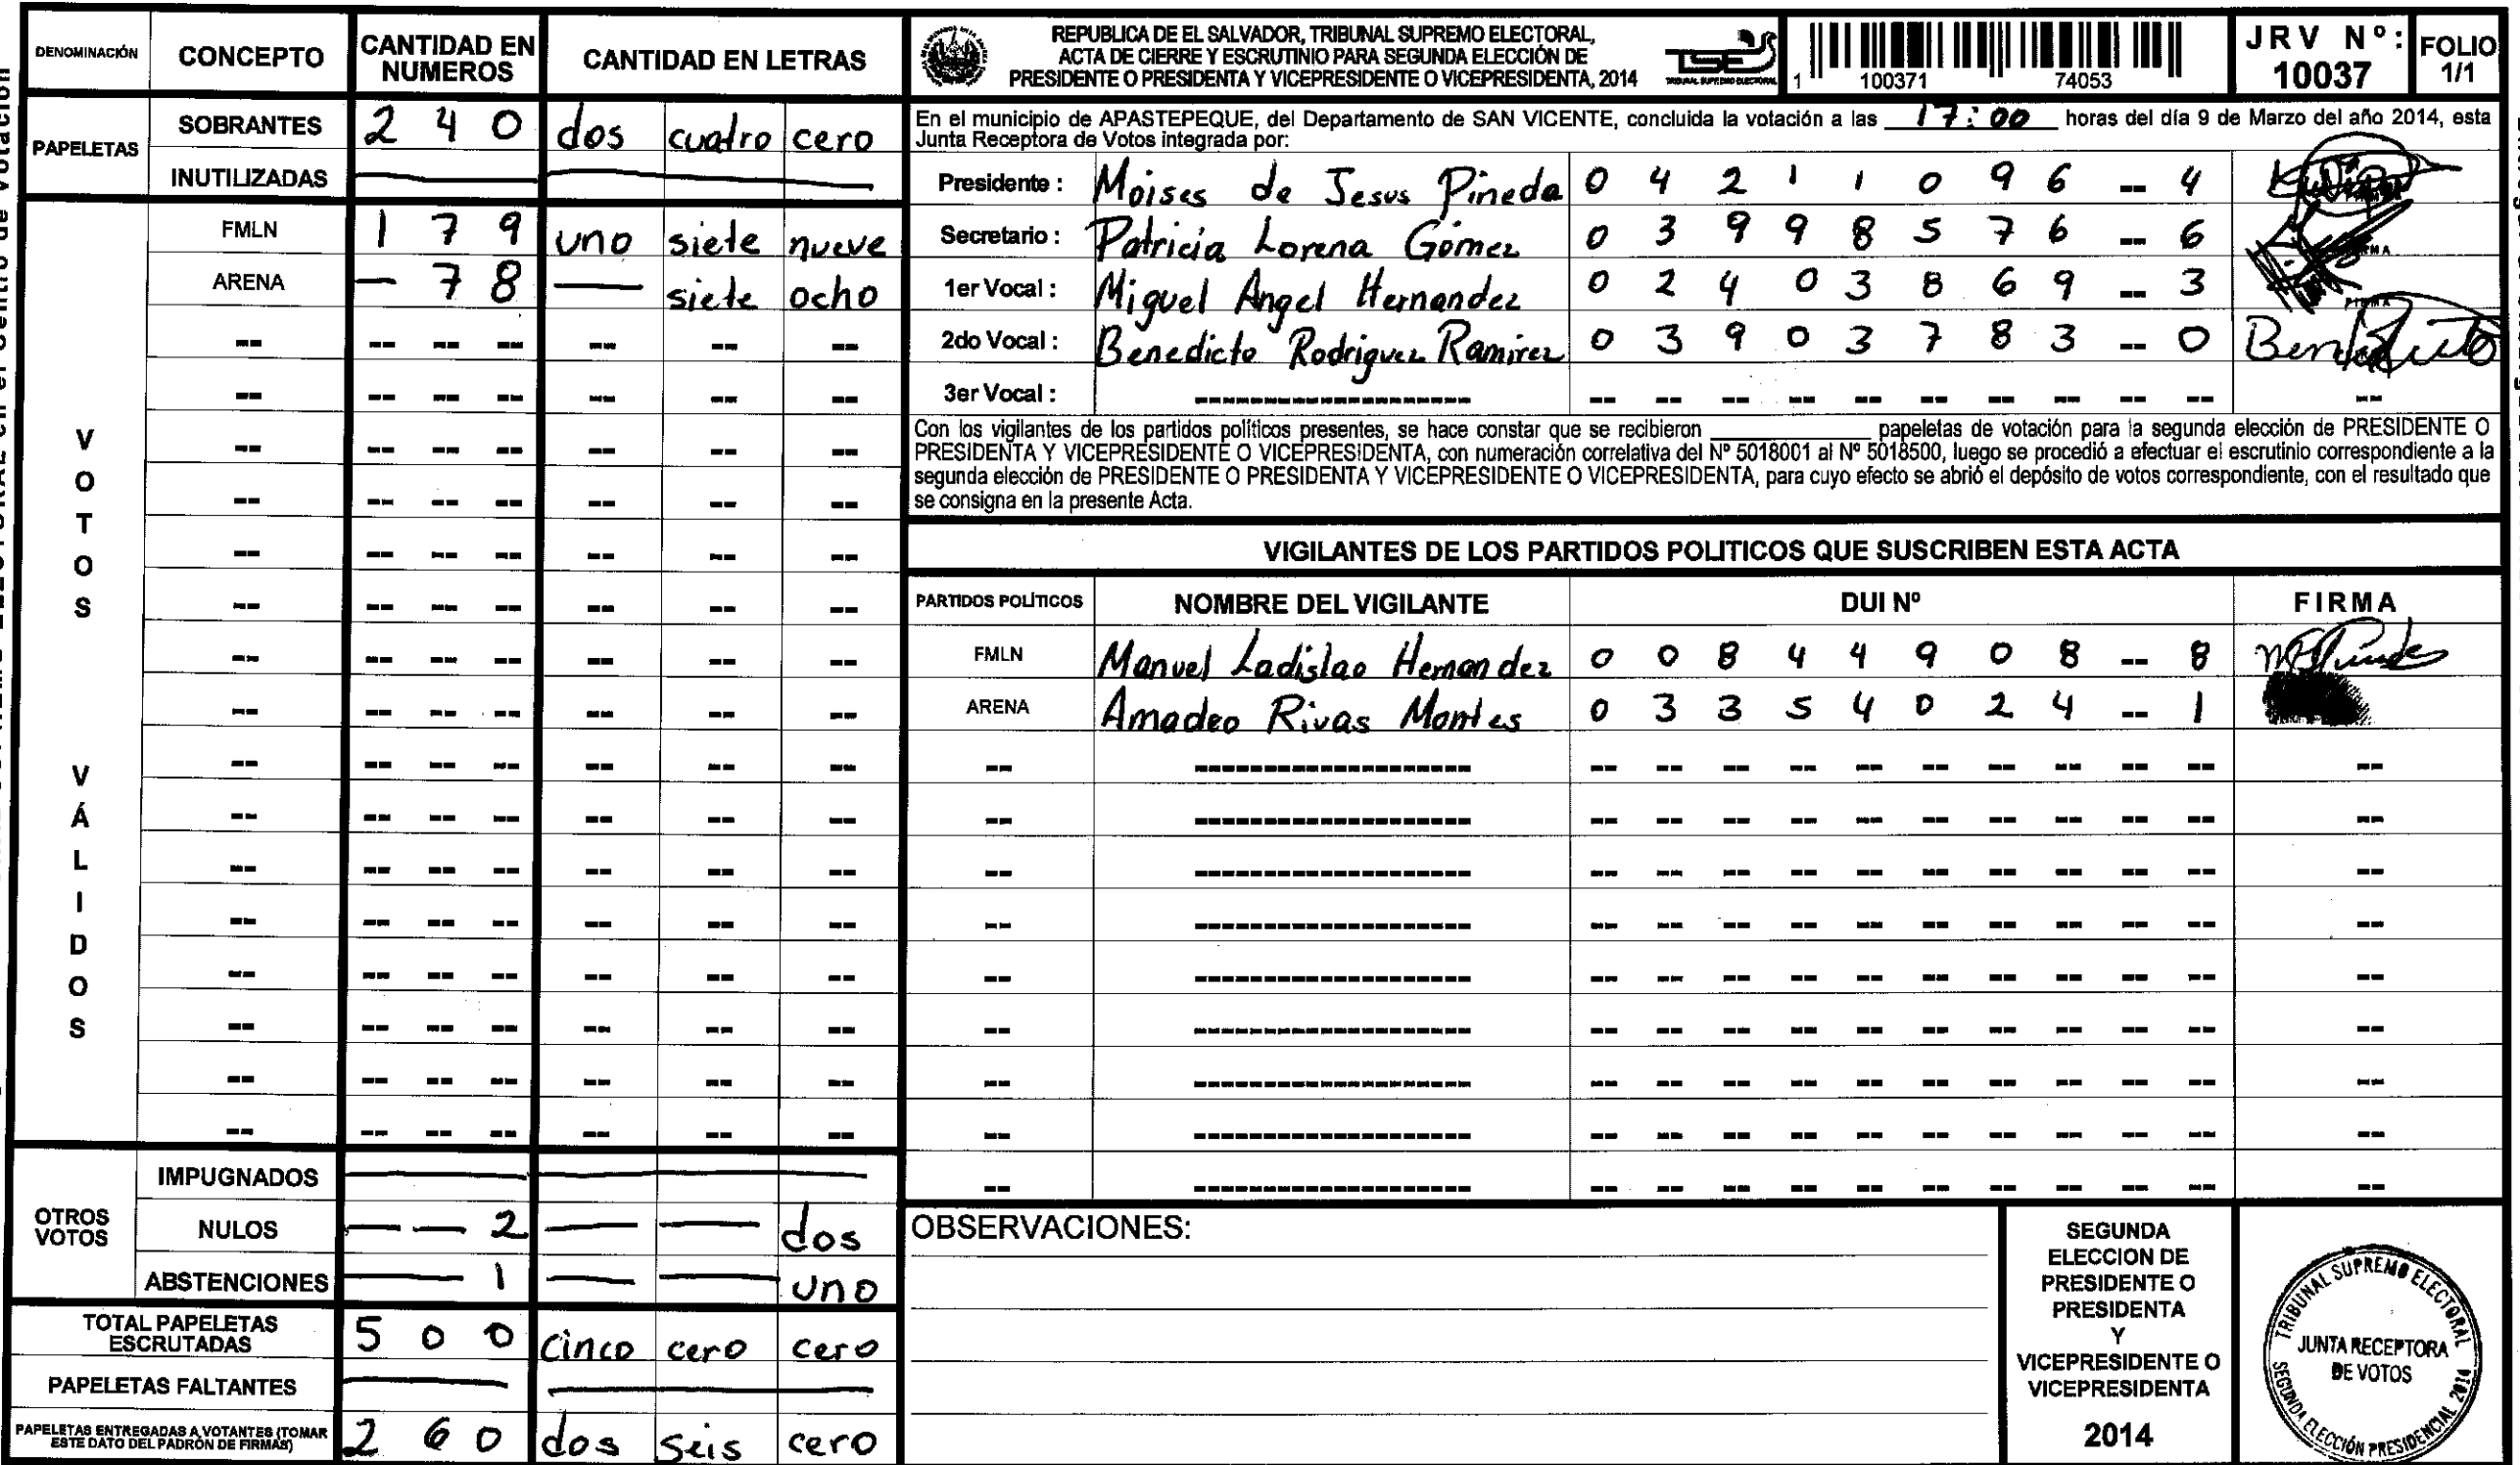 DENOMINACIÓN CONCEPTO CANTIDAD EN NUMEROS CANTIDAD EN LETRAS
PAPELETAS
SOBRANTES 2 4 0 dos cuatro cero
INUTILIZADAS
VOTOS VÁLIDOS
FMLN 1 7 9 uno siete nueve
ARENA — 7 8 — siete ocho
OTROS VOTOS
IMPUGNADOS
NULOS — — 2 — — dos
ABSTENCIONES — 1 — — uno
TOTAL PAPELETAS ESCRUTADAS 5 0 0 cinco cero cero
PAPELETAS FALTANTES
PAPELETAS ENTREGADAS A VOTANTES (TOMAR ESTE DATO DEL PADRÓN DE FIRMAS) 2 6 0 dos seis cero
REPUBLICA DE EL SALVADOR, TRIBUNAL SUPREMO ELECTORAL,
ACTA DE CIERRE Y ESCRUTINIO PARA SEGUNDA ELECCIÓN DE
PRESIDENTE O PRESIDENTA Y VICEPRESIDENTE O VICEPRESIDENTA, 2014
TSE
TRIBUNAL SUPREMO ELECTORAL
1 100371 74053
JRV Nº: 10037
FOLIO 1/1
En el municipio de APASTEPEQUE, del Departamento de SAN VICENTE, concluida la votación a las 17:00 horas del día 9 de Marzo del año 2014, esta
Junta Receptora de Votos integrada por:
Presidente : Moises de Jesus Pineda 0 4 2 1 1 0 9 6 -- 4
Secretario : Patricia Lorena Gómez 0 3 9 9 8 5 7 6 -- 6
1er Vocal : Miguel Angel Hernandez 0 2 4 0 3 8 6 9 -- 3
2do Vocal : Benedicto Rodriguez Ramirez 0 3 9 0 3 7 8 3 -- 0
3er Vocal :
Con los vigilantes de los partidos políticos presentes, se hace constar que se recibieron ____ papeletas de votación para la segunda elección de PRESIDENTE O
PRESIDENTA Y VICEPRESIDENTE O VICEPRESIDENTA, con numeración correlativa del Nº 5018001 al Nº 5018500, luego se procedió a efectuar el escrutinio correspondiente a la
segunda elección de PRESIDENTE O PRESIDENTA Y VICEPRESIDENTE O VICEPRESIDENTA, para cuyo efecto se abrió el depósito de votos correspondiente, con el resultado que
se consigna en la presente Acta.
VIGILANTES DE LOS PARTIDOS POLITICOS QUE SUSCRIBEN ESTA ACTA
PARTIDOS POLÍTICOS NOMBRE DEL VIGILANTE DUI Nº FIRMA
FMLN Manuel Ladislao Hernandez 0 0 8 4 4 9 0 8 -- 8
ARENA Amadeo Rivas Montes 0 3 3 5 4 0 2 4 -- 1
OBSERVACIONES:
SEGUNDA
ELECCION DE
PRESIDENTE O
PRESIDENTA
Y
VICEPRESIDENTE O
VICEPRESIDENTA
2014
TRIBUNAL SUPREMO ELECTORAL
JUNTA RECEPTORA
DE VOTOS
SEGUNDA ELECCIÓN PRESIDENCIAL 2014